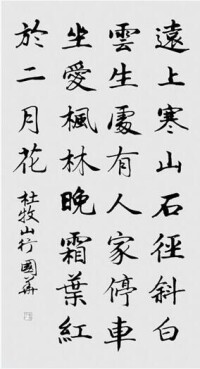 遠上寒山石徑斜白
雲生處有人家停車
坐愛楓林晚霜葉紅
於二月花
杜牧山行國